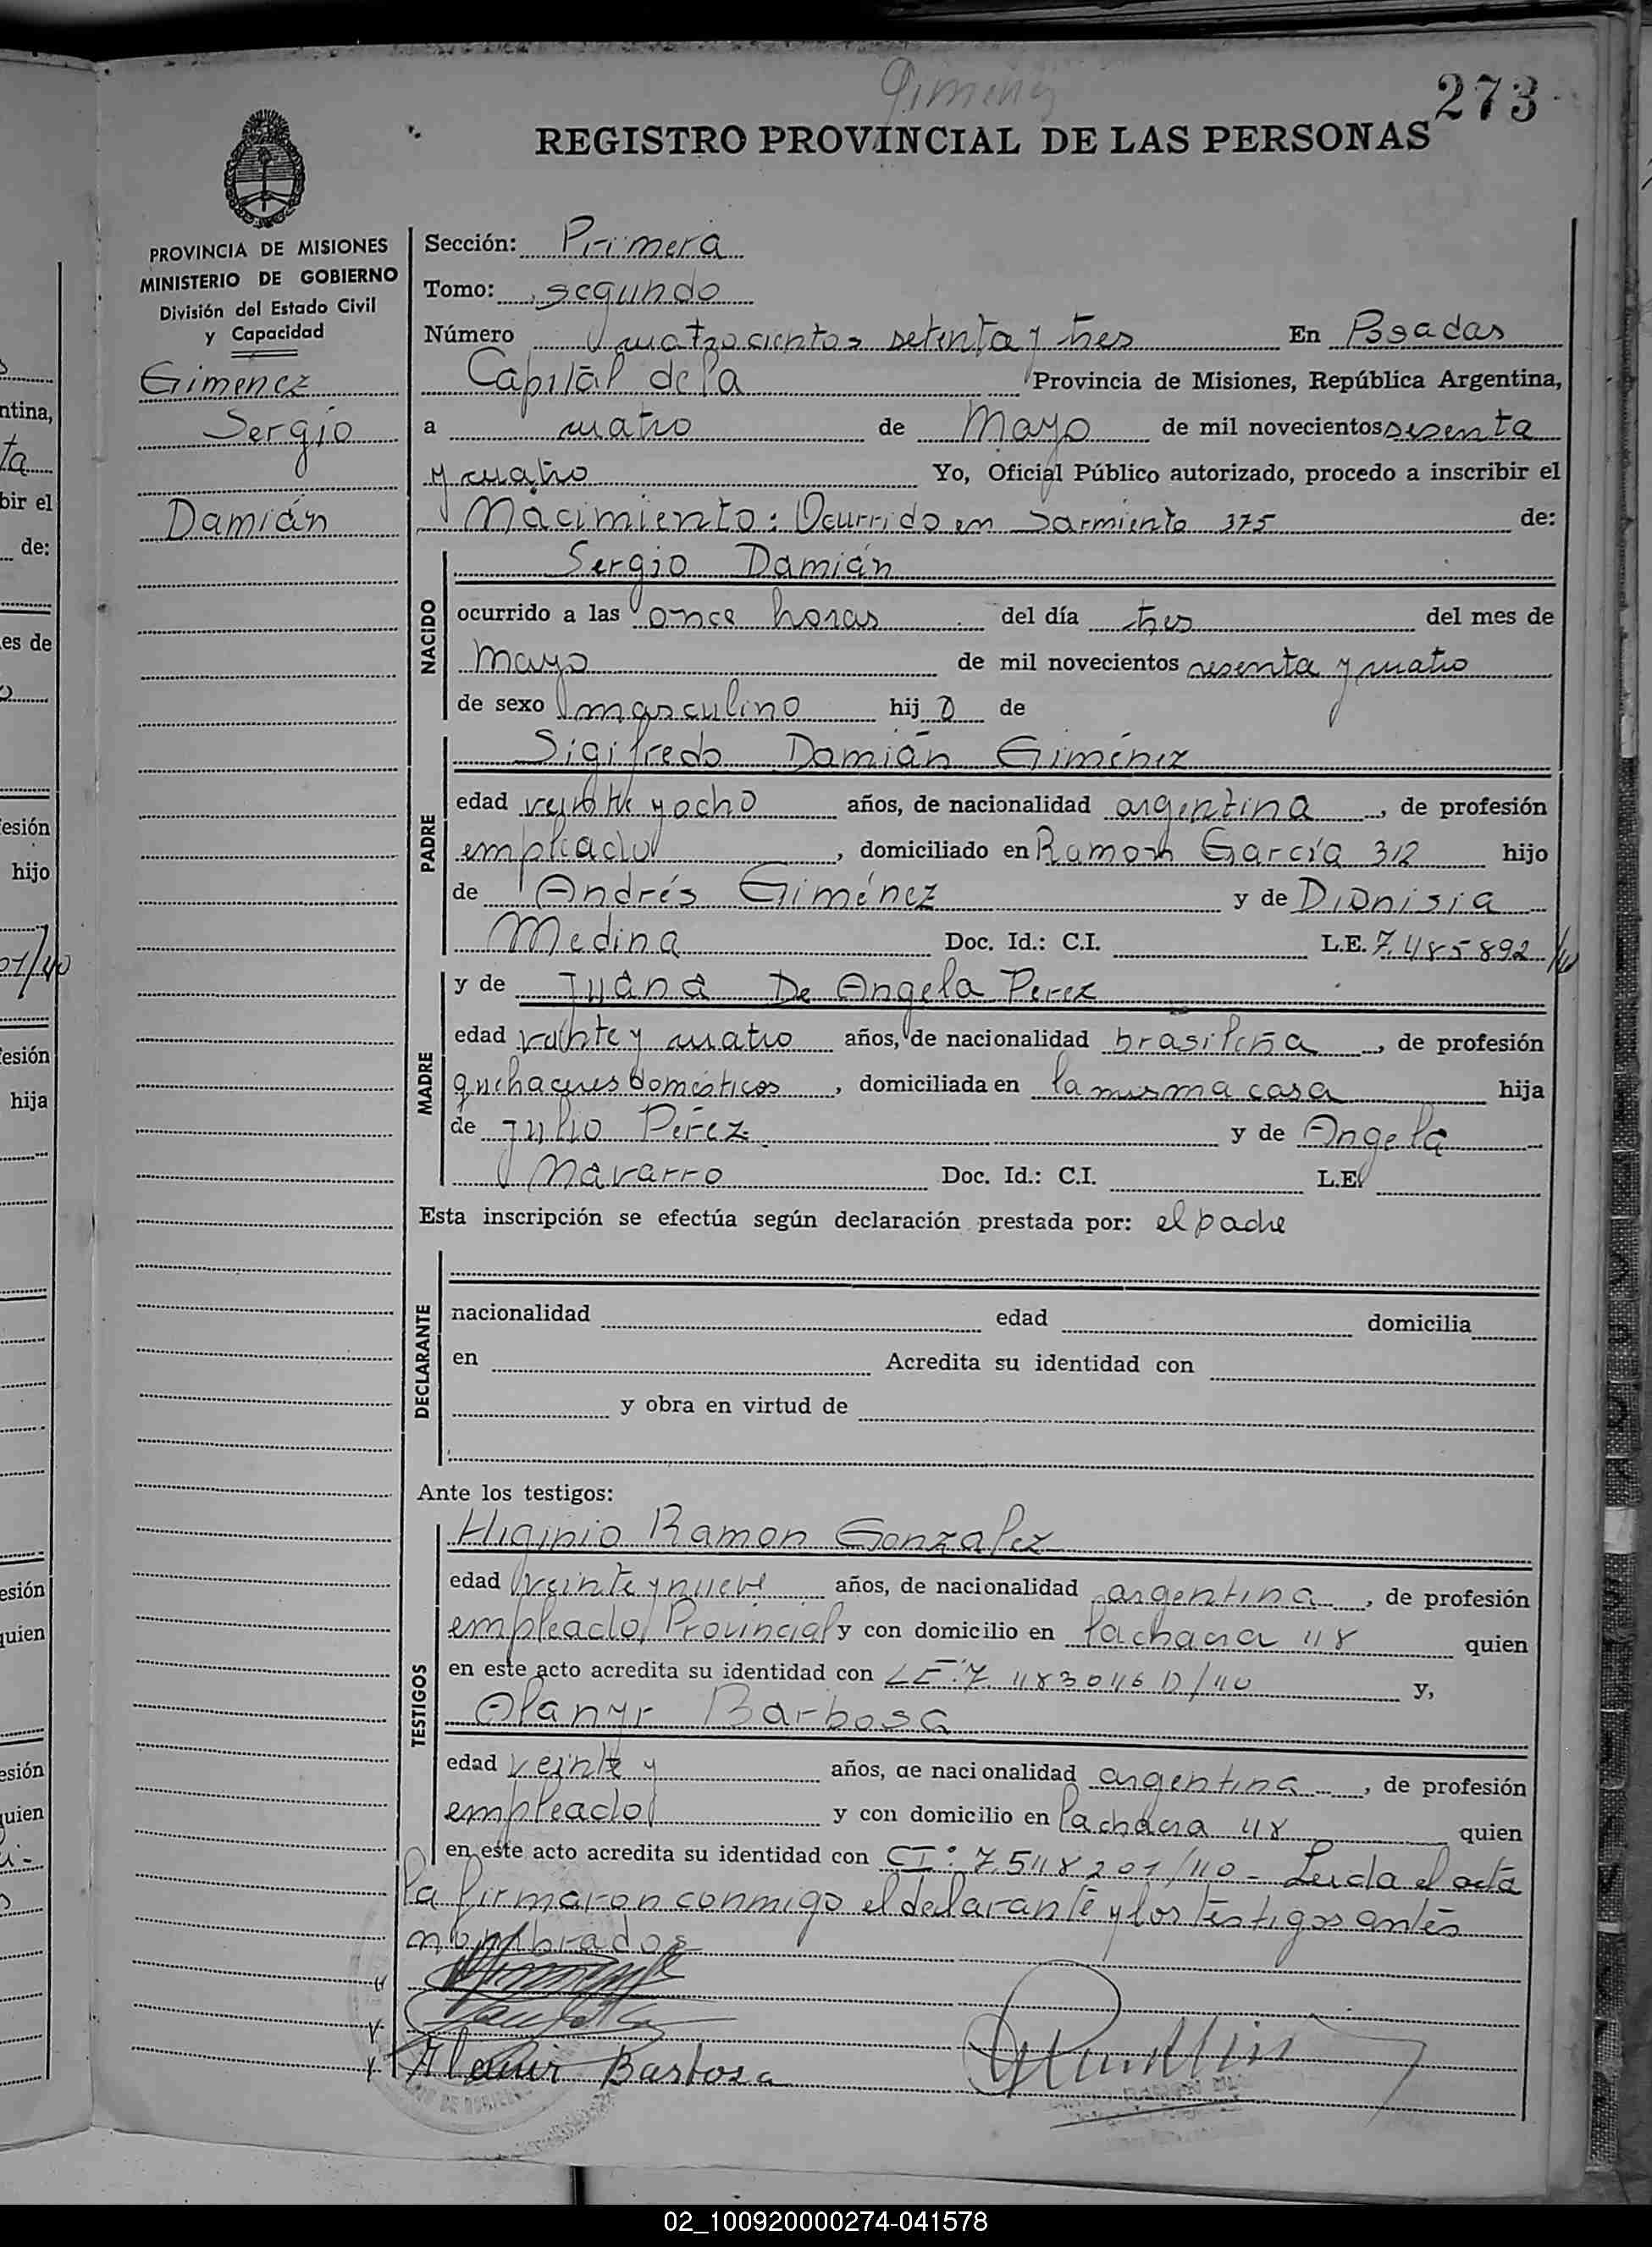 Gimenez
273
REGISTRO PROVINCIAL DE LAS PERSONAS
PROVINCIA DE MISIONES
MINISTERIO DE GOBIERNO
División del Estado Civil
y Capacidad
Gimenez
Sergio
Damián
Sección: Primera
Tomo: segundo
Número cuatrocientos setenta y tres En Posadas
Capital de la Provincia de Misiones, República Argentina,
a cuatro de Mayo de mil novecientos sesenta
y cuatro Yo, Oficial Público autorizado, procedo a inscribir el
Nacimiento: Ocurrido en Sarmiento 375 de:
NACIDO
Sergio Damián
ocurrido a las once horas del día tres del mes de
mayo de mil novecientos sesenta y cuatro
de sexo masculino hijo de
PADRE
Sigifredo Damián Giménez
edad veinte y ocho años, de nacionalidad argentina, de profesión
empleado, domiciliado en Ramon García 312 hijo
de Andrés Giménez y de Dionisia
Medina Doc. Id.: C.I. L.E. 7.485892
MADRE
y de Juana De Angela Perez
edad veinte y cuatro años, de nacionalidad brasileña, de profesión
quehaceres domésticos, domiciliada en la misma casa hija
de Julio Pérez y de Angela
Navarro Doc. Id.: C.I. L.E.
Esta inscripción se efectúa según declaración prestada por: el padre
DECLARANTE
nacionalidad edad domicilia
en Acredita su identidad con
y obra en virtud de
Ante los testigos:
TESTIGOS
Higinio Ramon Gonzalez
edad veinte y nueve años, de nacionalidad argentina, de profesión
empleado Provincial y con domicilio en la chacra 48 quien
en este acto acredita su identidad con LE: 7. 483046 D/40 y,
Alanyr Barbosa
edad veinte y años, de nacionalidad argentina, de profesión
empleado y con domicilio en la chacra 48 quien
en este acto acredita su identidad con CI: 7.548201/40 - Leída el acta
la firmaron conmigo el declarante y los testigos antes
nombrados
Alanir Barbosa
02_100920000274-041578